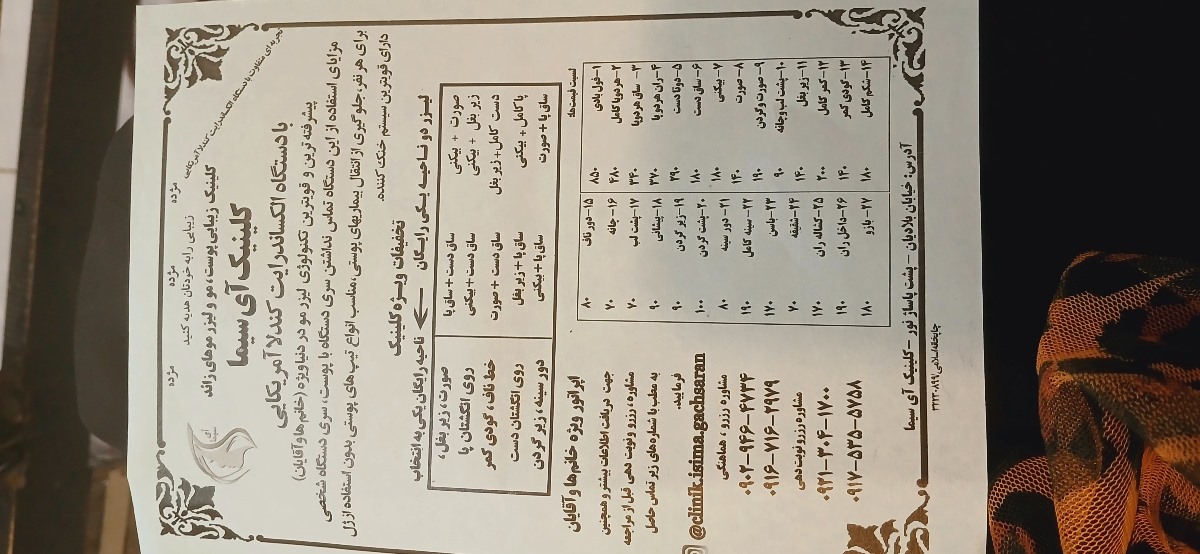 مژده مژده مژده
زیبایی را به خودتان هدیه کنید
تجربه‌ای متفاوت با دستگاه الکساندرایت کندلا آمریکایی
کلینیک زیبایی پوست، مو و لیزر موهای زائد
کلینیک آی سیما
با دستگاه الکساندرایت کندلا آمریکایی
پیشرفته ترین و قویترین تکنولوژی لیزر مو در دنیا ویژه (خانم ها و آقایان)
مزایای استفاده از این دستگاه تماس نداشتن سری دستگاه با پوست، سری دستگاه شخصی
برای هر نفر، جلوگیری از انتقال بیماریهای پوستی، مناسب انواع تیپ های پوستی بدون استفاده از ژل
دارای قویترین سیستم خنک کننده.
تخفیفات ویژه کلینیک
لیزر دو ناحیه یکی رایگان ← ناحیه رایگان یکی به انتخاب
صورت + بیکنی
زیر بغل + بیکنی
دست کامل + زیر بغل
پا کامل + بیکنی
ساق پا + صورت
ساق دست + ساق پا
ساق دست + بیکنی
ساق دست + صورت
ساق پا + زیر بغل
ساق پا + بیکنی
صورت، زیر بغل،
روی انگشتان پا
خط ناف، گودی کمر
روی انگشتان دست
دور سینه، زیر گردن
لیست قیمت‌ها:
۱- فول بادی ۸۵۰
۲- هر دو پا کامل ۴۸۰
۳- ساق هر دو پا ۳۴۰
۴- ران هر دو پا ۳۷۰
۵- دو تا دست ۲۹۰
۶- ساق دست ۱۸۰
۷- بیکنی ۱۸۰
۸- صورت ۱۴۰
۹- صورت و گردن ۱۹۰
۱۰- پشت لب و چانه ۹۰
۱۱- زیر بغل ۱۴۰
۱۲- کمر کامل ۲۰۰
۱۳- گودی کمر ۱۴۰
۱۴- شکم کامل ۱۸۰
۱۵- دور ناف ۸۰
۱۶- چانه ۷۰
۱۷- پشت لب ۷۰
۱۸- پیشانی ۹۰
۱۹- زیر گردن ۹۰
۲۰- پشت گردن ۱۰۰
۲۱- دور سینه ۸۰
۲۲- سینه کامل ۱۹۰
۲۳- باسن ۱۷۰
۲۴- شقیقه ۷۰
۲۵- کشاله ران ۱۷۰
۲۶- داخل ران ۱۹۰
۲۷- بازو ۱۸۰
اپراتور ویژه خانم ها و آقایان
جهت دریافت اطلاعات بیشتر و همچنین
مشاوره، رزرو و نوبت دهی قبل از مراجعه
به مطب با شماره های زیر تماس حاصل
فرمایید.
@clinik.isima.gachsaran
مشاوره رزرو، هماهنگی
۰۹۰۲-۹۴۶-۴۷۳۴
۰۹۱۶-۷۱۶-۲۹۷۹
مشاوره رزرو نوبت دهی
۰۹۲۱-۳۰۴-۱۷۰۰
۰۹۱۷-۵۳۵-۵۷۵۸
آدرس: خیابان بلادیان - پشت پاساژ نور - کلینیک آی سیما